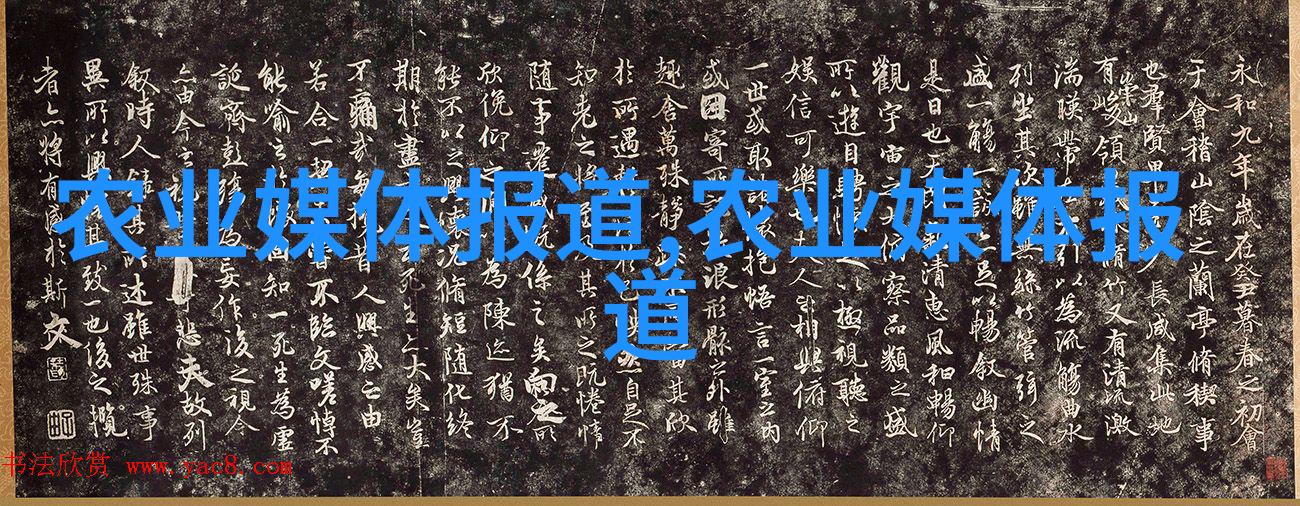 永和九年歲在癸丑暮春之初會
于會稽山陰之蘭亭脩稧事
也群賢畢至少長咸集此地
有崇山峻領茂林脩竹又有清流激
湍暎帶左右引以為流觴曲水
列坐其次雖無絲竹管弦之
盛一觴一詠亦足以暢敘幽情
是日也天朗氣清惠風和暢仰
觀宇宙之大俯察品類之盛
所以遊目騁懷足以極視聽之
娛信可樂也夫人之相與俯仰
一世或取諸懷抱悟言一室之內
或因寄所託放浪形骸之外雖
趣舍萬殊靜躁不同當其欣
於所遇暫得於己快然自足不
知老之將至及其所之既惓情
隨事遷感慨係之矣向之所
欣俛仰之間以為陳迹猶不
能不以之興懷況脩短隨化終
期於盡古人云死生亦大矣豈
不痛哉每攬昔人興感之由
若合一契未嘗不臨文嗟悼不
能喻之於懷固知一死生為虛
誕齊彭殤為妄作後之視今
亦由今之視昔悲夫故列
敘時人錄其所述雖世殊事
異所以興懷其致一也後之攬
者亦將有感於斯文
农业媒体报道,农业媒体报
道
书法欣赏 www.yac8.com